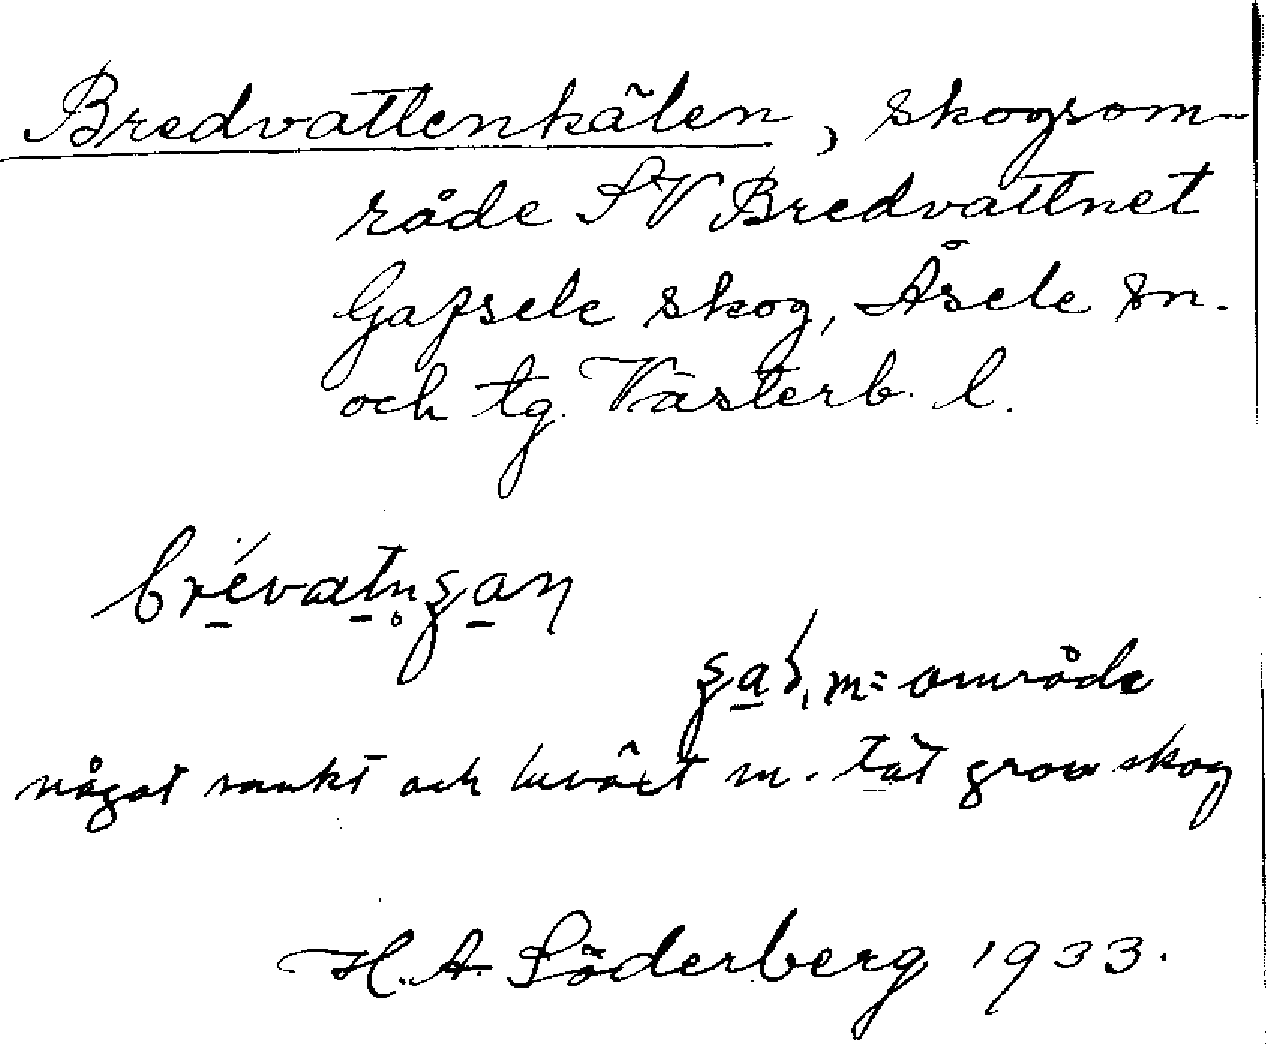 Bredvattenkälen, skogsom-
råde SV Bredvattnet
Gafsele skog, Åsele sn.
och tg. Västerb. l.
m = område
något sankt och buväxt m. tät grov skog
H. A. Söderberg 1933.